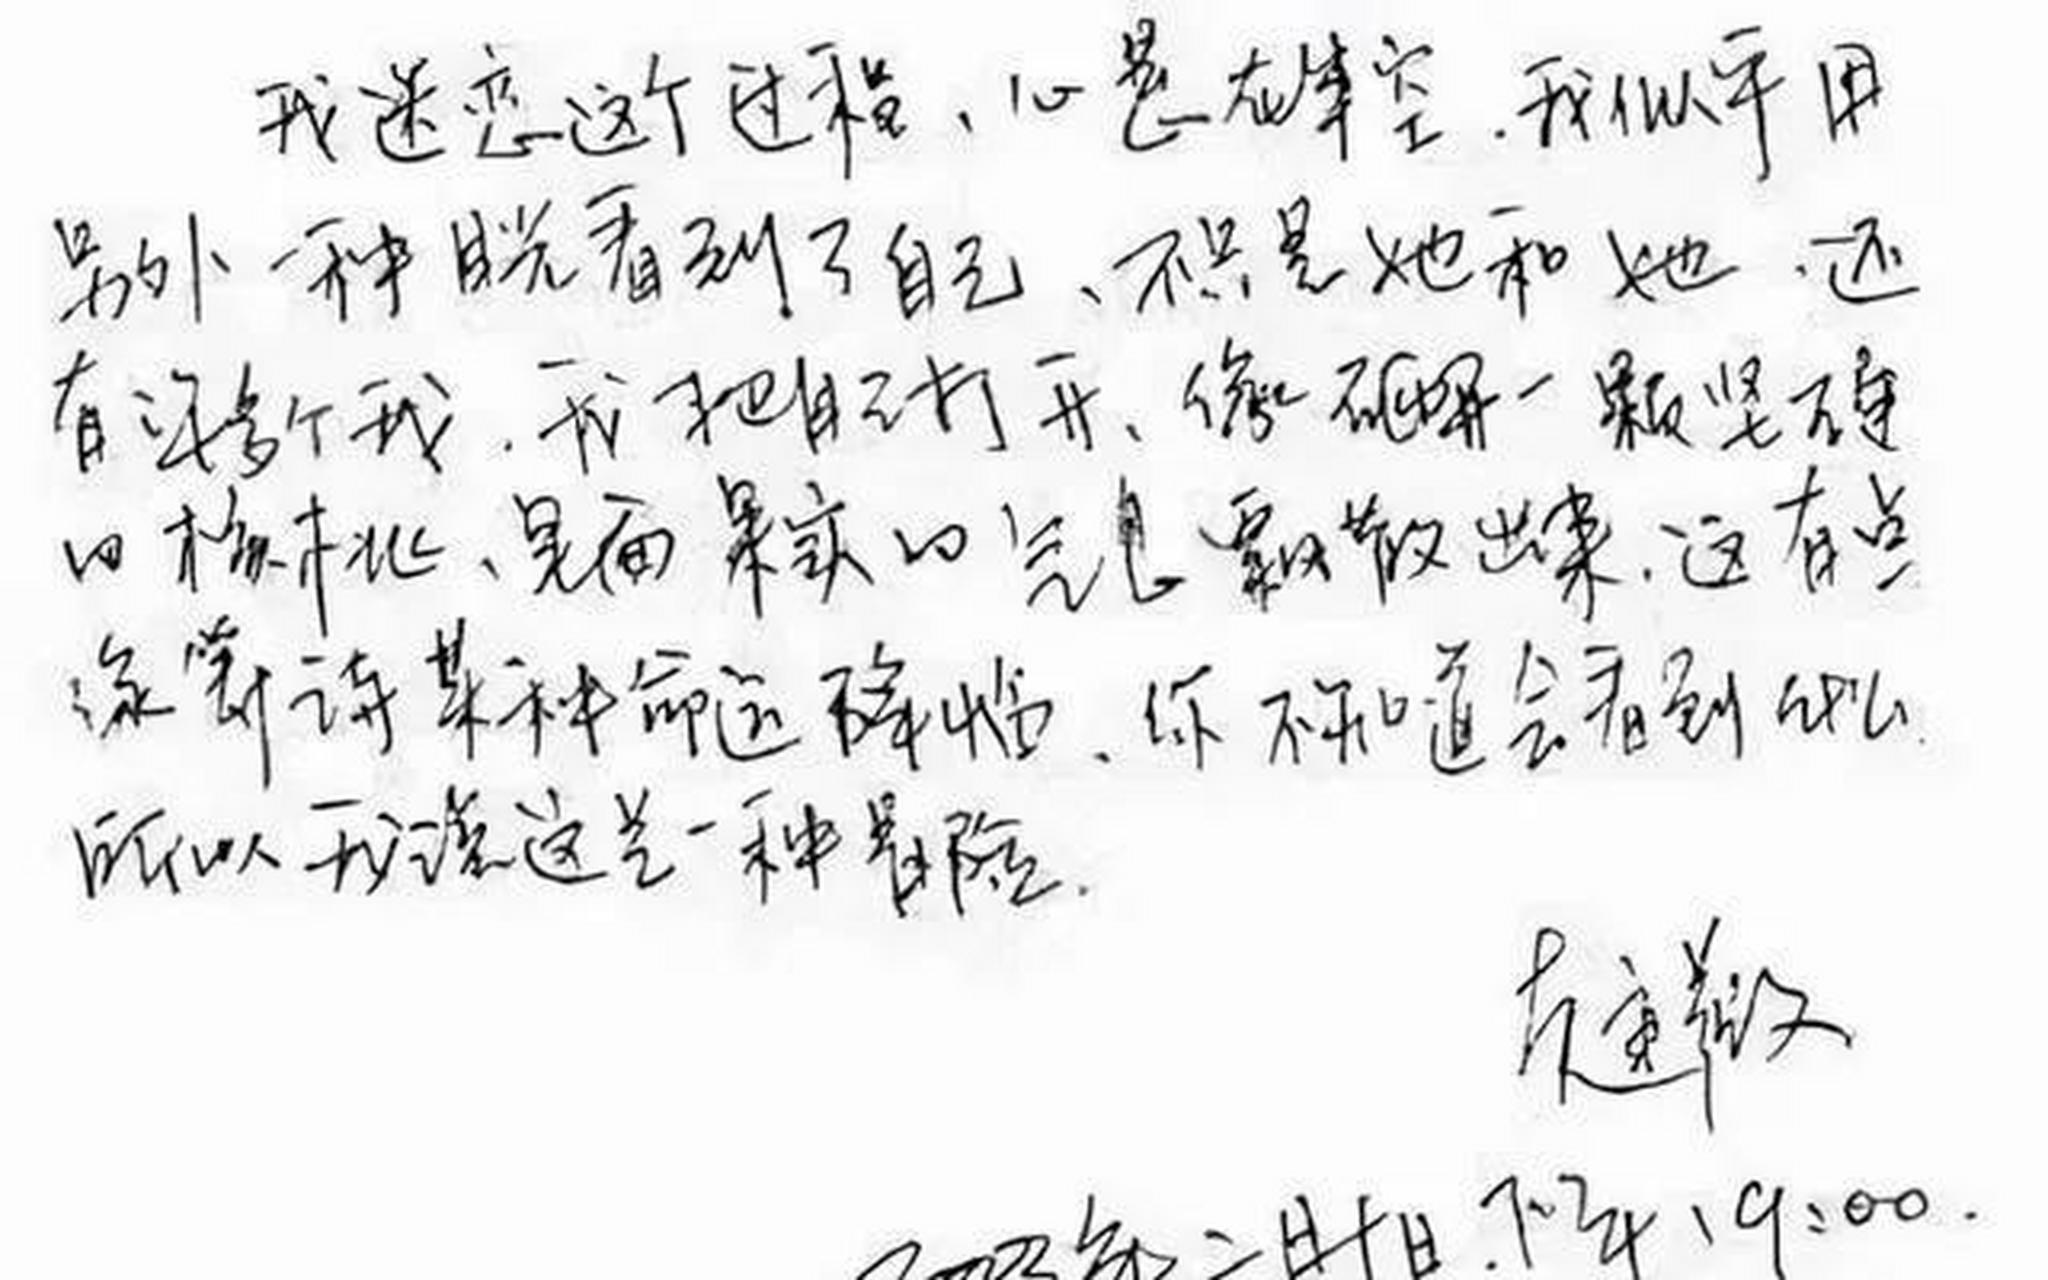 我迷恋这个过程、心悬在半空.我似乎用
另外一种眼光看到了自己、不只是她和她.还
有许多个我.我把自己打开、像砸开一颗坚硬
的核桃、里面果实的气息飘散出来.这有点
像等待某种命运降临、你不知道会看到什么.
所以我说这是一种冒险.
年二月十日.下午、9:00.